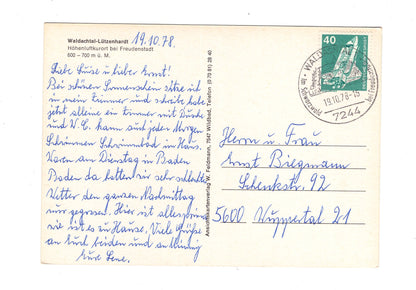 Waldachtal-Lützenhardt
Höhenluftkurort bei Freudenstadt
600 - 700 m ü. M.
19.10.78.
Liebe Luise u lieber Ernst!
Bei schönem Sonnenschein sitze ich
in mein Zimmer und schreibe habe
jetzt alleine ein Zimmer mit Dusche
und W.C. kann auf jeden Morgen
Schwimmen Schwimmbad im Haus.
Waren am Dienstag in Baden
Baden da hatten wir sehr schlechtes
Wetter den ganzen Nachmittag
nur gegossen. Hier ist alles prima
wie ist es zu Hause. Viele Grüße
an Euch beiden und an
Eure Lene.
Ansichtskartenverlag W. Feldmann, 7547 Wildbad, Telefon (0 70 81) 28 40
40
19.10.78-15
7244
Herrn u Frau
Ernst Biegmann
Schenkstr. 92
5600 Wuppertal 21